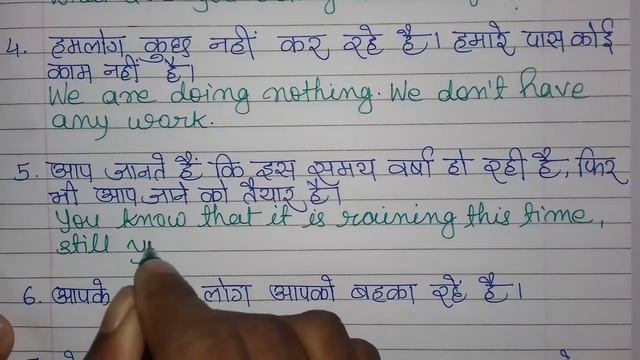 4. हमलोग कुछ नहीं कर रहे है। हमारे पास कोई
काम नहीं है।
We are doing nothing. We don't have
any work.
5. आप जानते हैं कि इस समय वर्षा हो रही है, फिर
भी आप जाने को तैयार है।
You know that it is raining this time,
still y
6. आपके लोग आपको बहका रहें है।